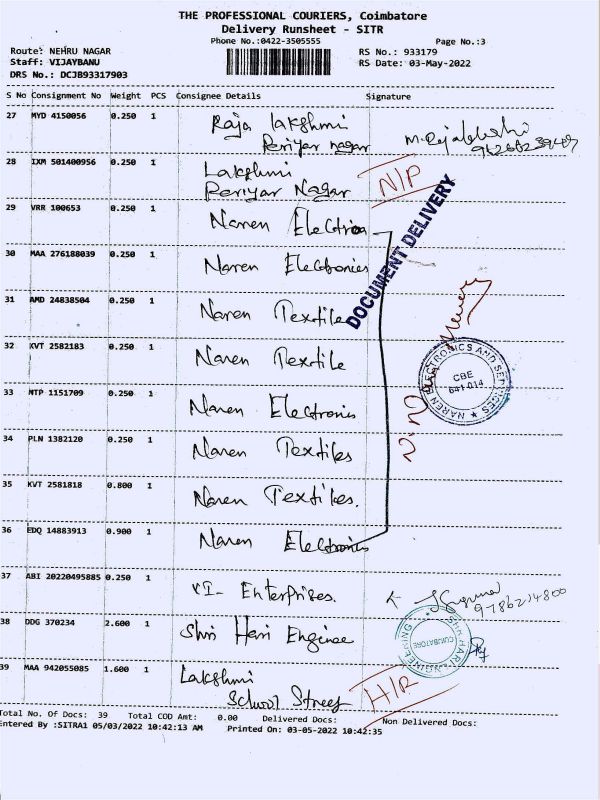 THE PROFESSIONAL COURIERS, Coimbatore
Delivery Runsheet - SITR
Phone No.:0422-3505555 Page No.:3
Route: NEHRU NAGAR RS No.: 933179
Staff: VIJAYBANU RS Date: 03-May-2022
DRS No.: DCJB93317903
S No Consignment No Weight PCS Consignee Details Signature
27 MYD 4150056 0.250 1 Raja Lakshmi
Periyar nagar
28 IXM 501400956 0.250 1 Lakshmi N/P
Periyar Nagar
29 VRR 100653 0.250 1 Naren
DOCUMENT DELIVERY
30 MAA 276188039 0.250 1 Naren Electronics
31 AMD 24838504 0.250 1 Naren Textile
32 KVT 2582183 0.250 1 Naren Textile
NAREN ELECTRONICS AND SERVICES
CBE
641 014
33 NTP 1151709 0.250 1 Naren Electronics
34 PLN 1382120 0.250 1 Naren Textiles
35 KVT 2581818 0.800 1 Naren Textiles.
36 EDQ 14883913 0.900 1 Naren Electronics
37 ABI 20220495885 0.250 1 Enterprises.
9786214800
38 DDG 370234 2.600 1 Shri Hari Enginee
SHRI HARI ENGINEERING
COIMBATORE
39 MAA 942055085 1.600 1 Lakshmi H/R
School Street
Total No. Of Docs: 39 Total COD Amt: 0.00 Delivered Docs: Non Delivered Docs:
Entered By :SITRA1 05/03/2022 10:42:13 AM Printed On: 03-05-2022 10:42:35